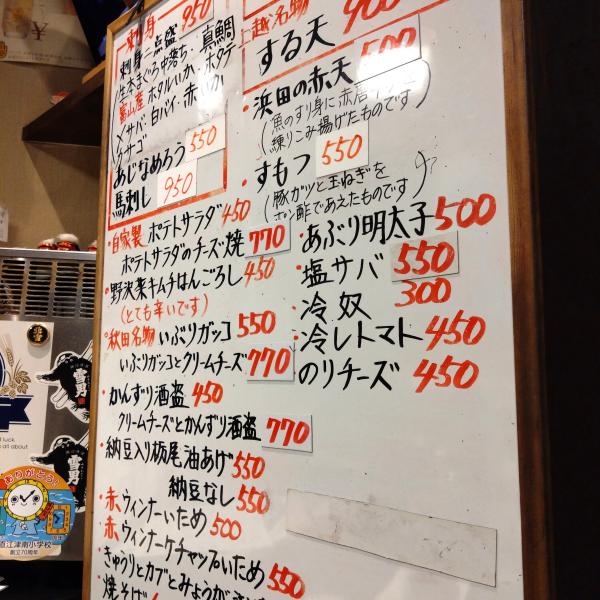 刺身 950
刺身三点盛
生本まぐろ中落ち、真鯛
富山産 ホタルいか、ホタテ
〆サバ、白バイ、赤いか
クサゴ
あじなめろう 550
馬刺し 950
・自家製 ポテトサラダ 450
ポテトサラダのチーズ焼 770
・野沢菜キムチはんごろし 450
(とても辛いです)
・秋田名物 いぶりガッコ 550
いぶりガッコとクリームチーズ 770
・かんずり酒盗 450
クリームチーズとかんずり酒盗 770
・納豆入り栃尾油あげ 550
納豆なし 550
・赤ウィンナーいため 500
・赤ウィンナーケチャップいため 550
きゅうりとカブとみょうが
焼そば
上越名物 900
する天
・浜田の赤天 500
(魚のすり身に赤唐
練りこみ揚げたものです)
・すもつ 550
(豚ガツと玉ねぎを
ポン酢であえたものです)
・あぶり明太子 500
・塩サバ 550
・冷奴 300
・冷しトマト 450
のりチーズ 450
雪男
ありがとう!
直江津南小学校
創立70周年
luck
all about